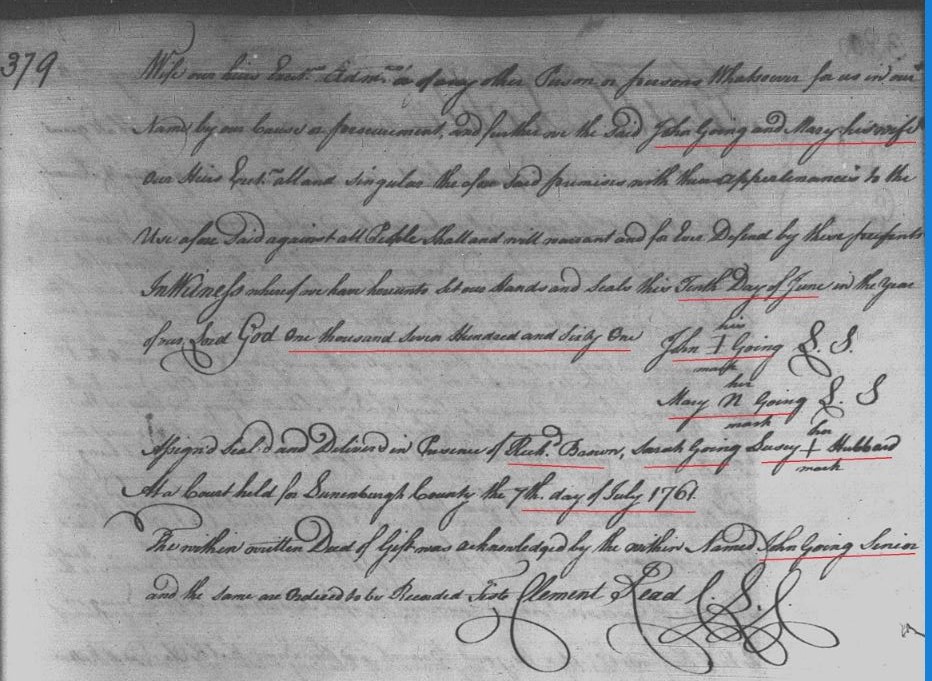 379
Wife our heirs Exct.rs Adm.rs or of any other Person or persons Whatsoever for us in our
Name, by our Cause or procurement, and further we the Said John Going and Mary his wife
our Heirs Exct.rs all and singular the afore said premises with their appertinances to the
Use afore Said against all People Shall and will warrant and for Ever Defend by these presents
In Witness whereof we have hereunto Set our Hands and Seals this Tenth Day of June in the Year
of our Lord God One thousand Seven Hundred and Sixty One
his
John + Going L. S.
mark
her
Mary N Going L. S
mark
her
Assign'd Seal'd and Deliver'd in Presence of Rich.d Brown, Sarah Going Susey + Hubbard
mark
At a Court held for Lunenburgh County the 7th. day of July 1761.
The within written Deed of Gift was acknowledged by the within Named John Going Senior
and the same are ordered to be Recorded Teste Clement Read C. L. C.